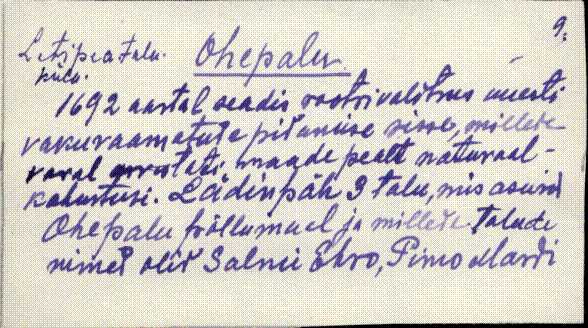 9.
Letipea talu.
küla.
Ohepalu
1692 aastal seadis rootsivalitsus uuesti
vakuraamatute pidamise sisse, millede
varal arvestati maade pealt naturaal-
kohustusi. 3 talu, mis asusid
Ohepalu põllumaal ja millede talude
nimed olid Salmi Ehro, Pimo Mardi